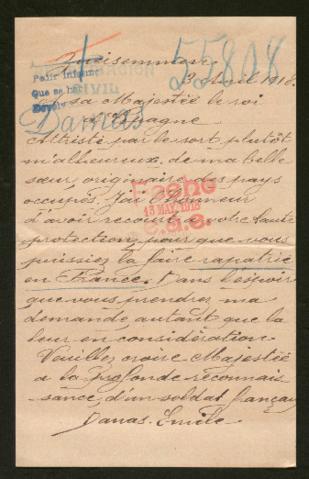 55808
3 Avril 1918.
Pair infant
Que se ha
CIVIL
Damas
a sa Majestée le roi
d'Espagne
Attristé par le sort plutôt
m'alheureux de ma belle
sœur, originaire des pays
occupés. J'ai l'honneur
d'avoir recourt a votre haute
protection, pour que vous
puissiez la faire rapatrié
en France. Dans l'espoir
que vous prendrez ma
demande autant que la
leur en considération.
Veuillez croire Majestée
a la profonde reconnais-
sance, d'un soldat français
Danas. Emile
Fecho
13 MAY 1918